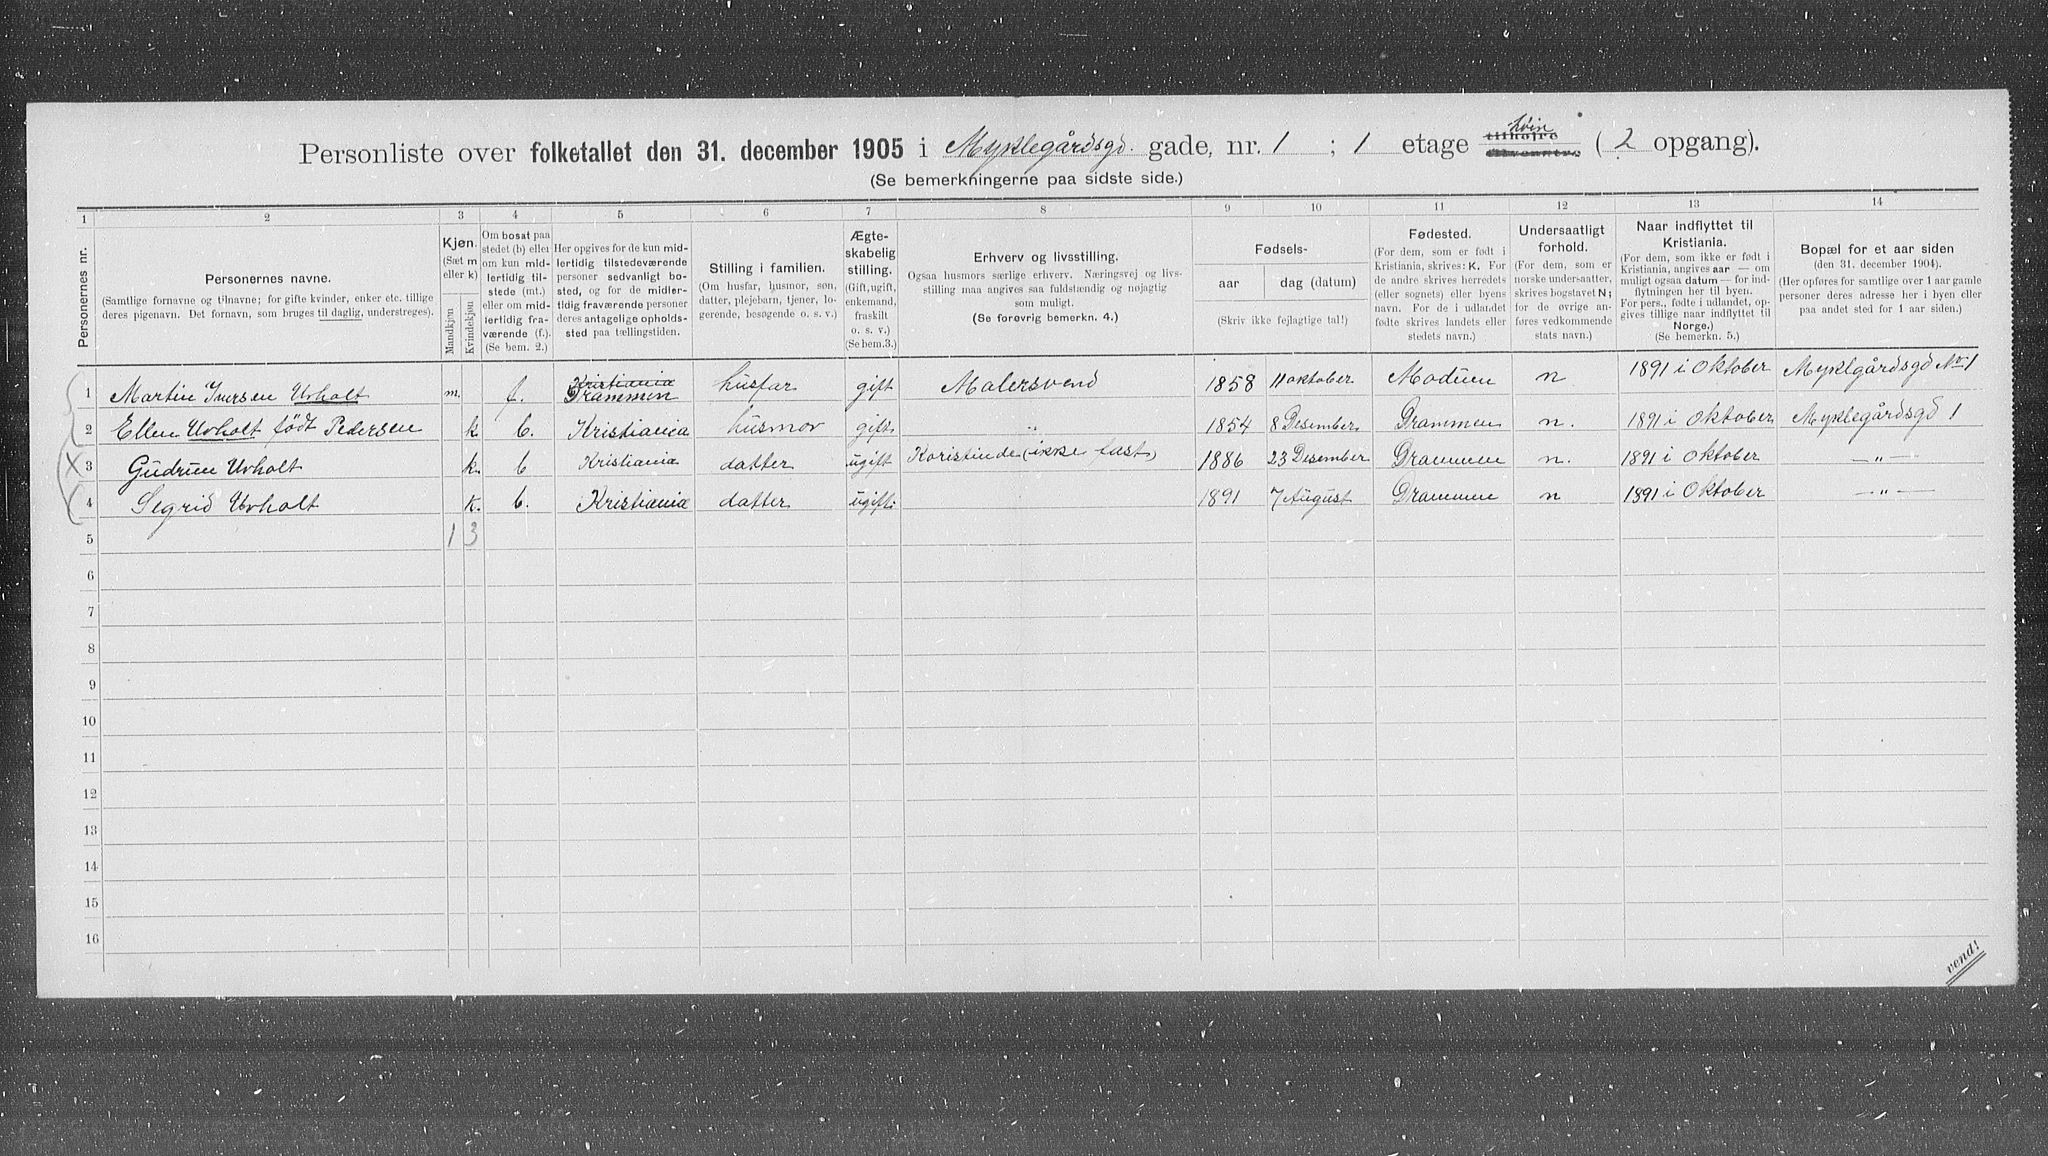 Personliste over folketallet den 31. december 1905 i Myklegårdsgd. gade, nr. 1 ; 1 etage tilhøjre tilvenstre høire ( 2 opgang).
(Se bemerkningerne paa sidste side.)
1 2 3 4 5 6 7 8 9 10 11 12 13 14
Personernes nr.
Personernes navne.
(Samtlige fornavne og tilnavne; for gifte kvinder, enker etc. tillige deres pigenavn. Det fornavn, som bruges til daglig, understreges).
Kjøn.
(Sæt m eller k)
Mandkjøn
Kvindekjøn
Om bosat paa stedet (b) eller om kun midlertidig tilstede (mt.) eller om midlertidig fraværende (f.). (Se bem. 2.)
Her opgives for de kun midlertidig tilstedeværende personer sedvanlig bosted, og for de midlertidig fraværende personer deres antagelige opholdssted paa tællingstiden.
Stilling i familien.
(Om husfar, husmor, søn, datter, plejebarn, tjener, logerende, besøgende o. s. v.)
Ægteskabelig stilling.
(Gift, ugift, enkemand, fraskilt o. s. v.)
(Se bem. 3.)
Erhverv og livsstilling.
Ogsaa husmors særlige erhverv. Næringsvej og livsstilling maa angives saa fuldstændig og nøjagtig som muligt.
(Se forøvrig bemerkn. 4.)
Fødsels-
aar
dag (datum)
(Skriv ikke fejlagtige tal!)
Fødested.
(For dem, som er født i Kristiania, skrives: K. For de andre skrives herredets (eller sognets) eller byens navn. For de i udlandet fødte skrives landets eller stedets navn.)
Undersaatligt forhold.
(For dem, som er norske undersaatter, skrives bogstavet N; for de øvrige anføres vedkommende stats navn.)
Naar indflyttet til Kristiania.
(For dem, som ikke er født i Kristiania, angives aar — om muligt ogsaa datum — for indflytningen her til byen. For pers., fødte i udlandet, opgives tillige naar indflyttet til Norge.)
(Se bemerkn. 5.)
Bopæl for et aar siden
(den 31. december 1904).
(Her opføres for samtlige over 1 aar gamle personer deres adresse her i byen eller paa andet sted for 1 aar siden.)
1 Martin Iversen Urholt m. f. Kristiania Drammen husfar gift Malersvend 1858 11 oktober Modum n 1891 i Oktober Myklgårdsgd No 1
2 Ellen Urholt födt Pedersen k b. Kristiania husmor gift „ 1854 8 Desember Drammen n. 1891 i Oktober Myklegårdsgd 1
3 Gudrun Urholt k. b Kristiania datter ugift (ikke fast) 1886 23 Desember Drammen n. 1891 i Oktober —„—
4 Segrid Urholt k. b. Kristiania datter ugift. 1891 7 August Drammen n 1891 i Oktober —„—
5 1 3
6
7
8
9
10
11
12
13
14
15
16
vend!